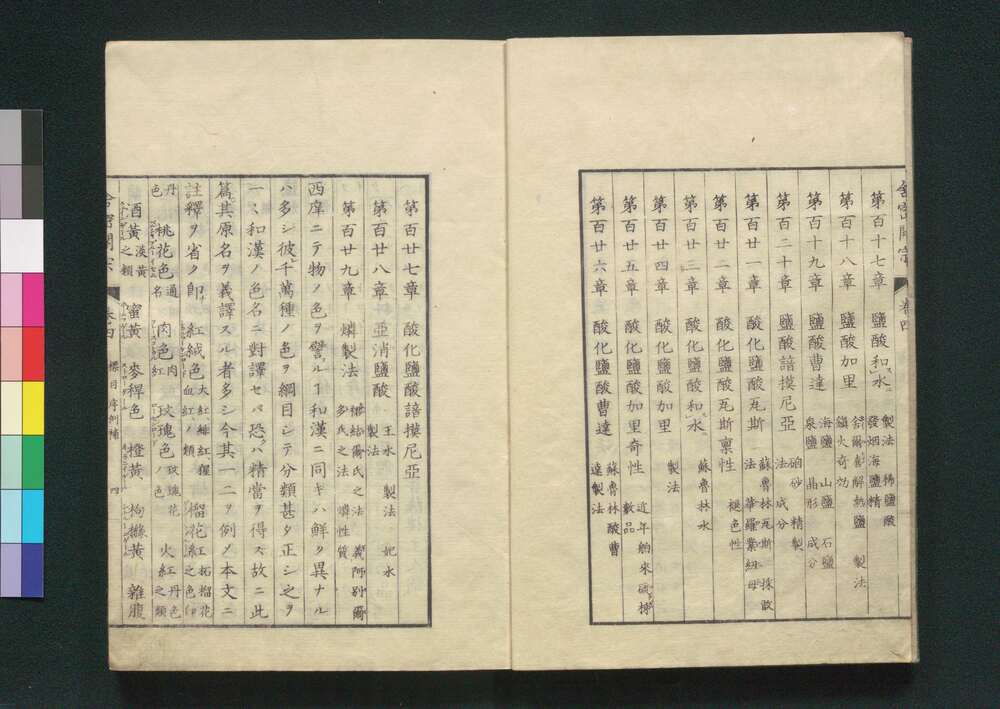 舎密開宗 巻四
第百十七章 鹽酸和水 製法 稀鹽酸 發烟海鹽精
第百十八章 鹽酸加里 解熱鹽 製法 鎖火奇効
第百十九章 鹽酸曹達 海鹽 山鹽 石鹽 泉鹽 晶形 成分
第百二十章 鹽酸諳摸尼亞 硇砂 精製法 成分
第百廿一章 酸化鹽酸瓦斯 蘇魯林瓦斯 採取法 華羅業紐母
第百廿二章 酸化鹽酸瓦斯禀性 褪色性
第百廿三章 酸化鹽酸和水 蘇魯林水
第百廿四章 酸化鹽酸加里 製法
第百廿五章 酸化鹽酸加里奇性 近年舶來硫 數品
第百廿六章 酸化鹽酸曹達 蘇魯林酸曹達製法
第百廿七章 酸化鹽酸諳摸尼亞
第百廿八章 亞消鹽酸 王水 製法 妃水 製法
第百廿九章 燐製法 氏之法 義阿別爾多氏之法 燐性質
西庠ニテ物ノ色ヲ譬ルヿ和漢ニ同キハ鮮ク異ナル
ハ多シ彼千萬種ノ色ヲ綱目シテ分類甚タ正シ之ヲ
一々和漢ノ色名ニ對譯セバ恐ハ精當ヲ得ズ故ニ此
篇其原名ヲ義譯スル者多シ今其一二ヲ例ノ本文ニ
註釋ヲ省ク即 紅絨色 大紅緋紅猩血紅ノ類 榴花紅 柘榴花
丹色 桃花色 通名 肉色 肉紅 玫瑰色 玫瑰花ノ色 火紅 丹色火紅之類
酒黄 淡黄之類 蜜黄 麥稈色 橙黄 枸櫞黄 雜腹
舎密開宗 巻四 標目 序例補 四